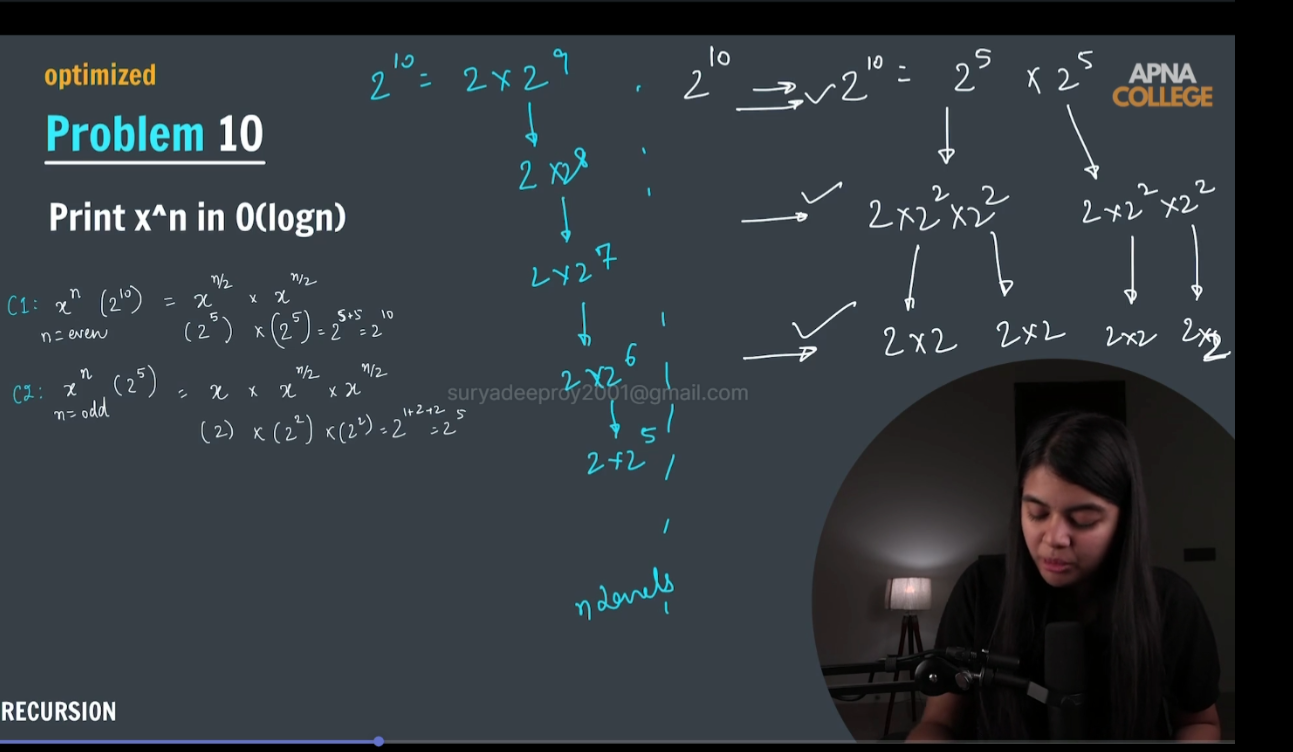 optimized
Problem 10
Print x^n in O(logn)
C1: xⁿ (2¹⁰) = x^n/2 × x^n/2
n = even (2⁵) × (2⁵) = 2⁵⁺⁵ = 2¹⁰
C2: xⁿ (2⁵) = x × x^n/2 × x^n/2
n = odd (2) × (2²) × (2²) = 2¹⁺²⁺² = 2⁵
2¹⁰ = 2 × 2⁹
2 × 2⁸
2 × 2⁷
2 × 2⁶
2 + 2⁵
n levels
2¹⁰ ✓ 2¹⁰ = 2⁵ × 2⁵
✓ 2 × 2² × 2² 2 × 2² × 2²
✓ 2 × 2 2 × 2 2 × 2 2 × 2
APNA
COLLEGE
suryadeeproy2001@gmail.com
RECURSION